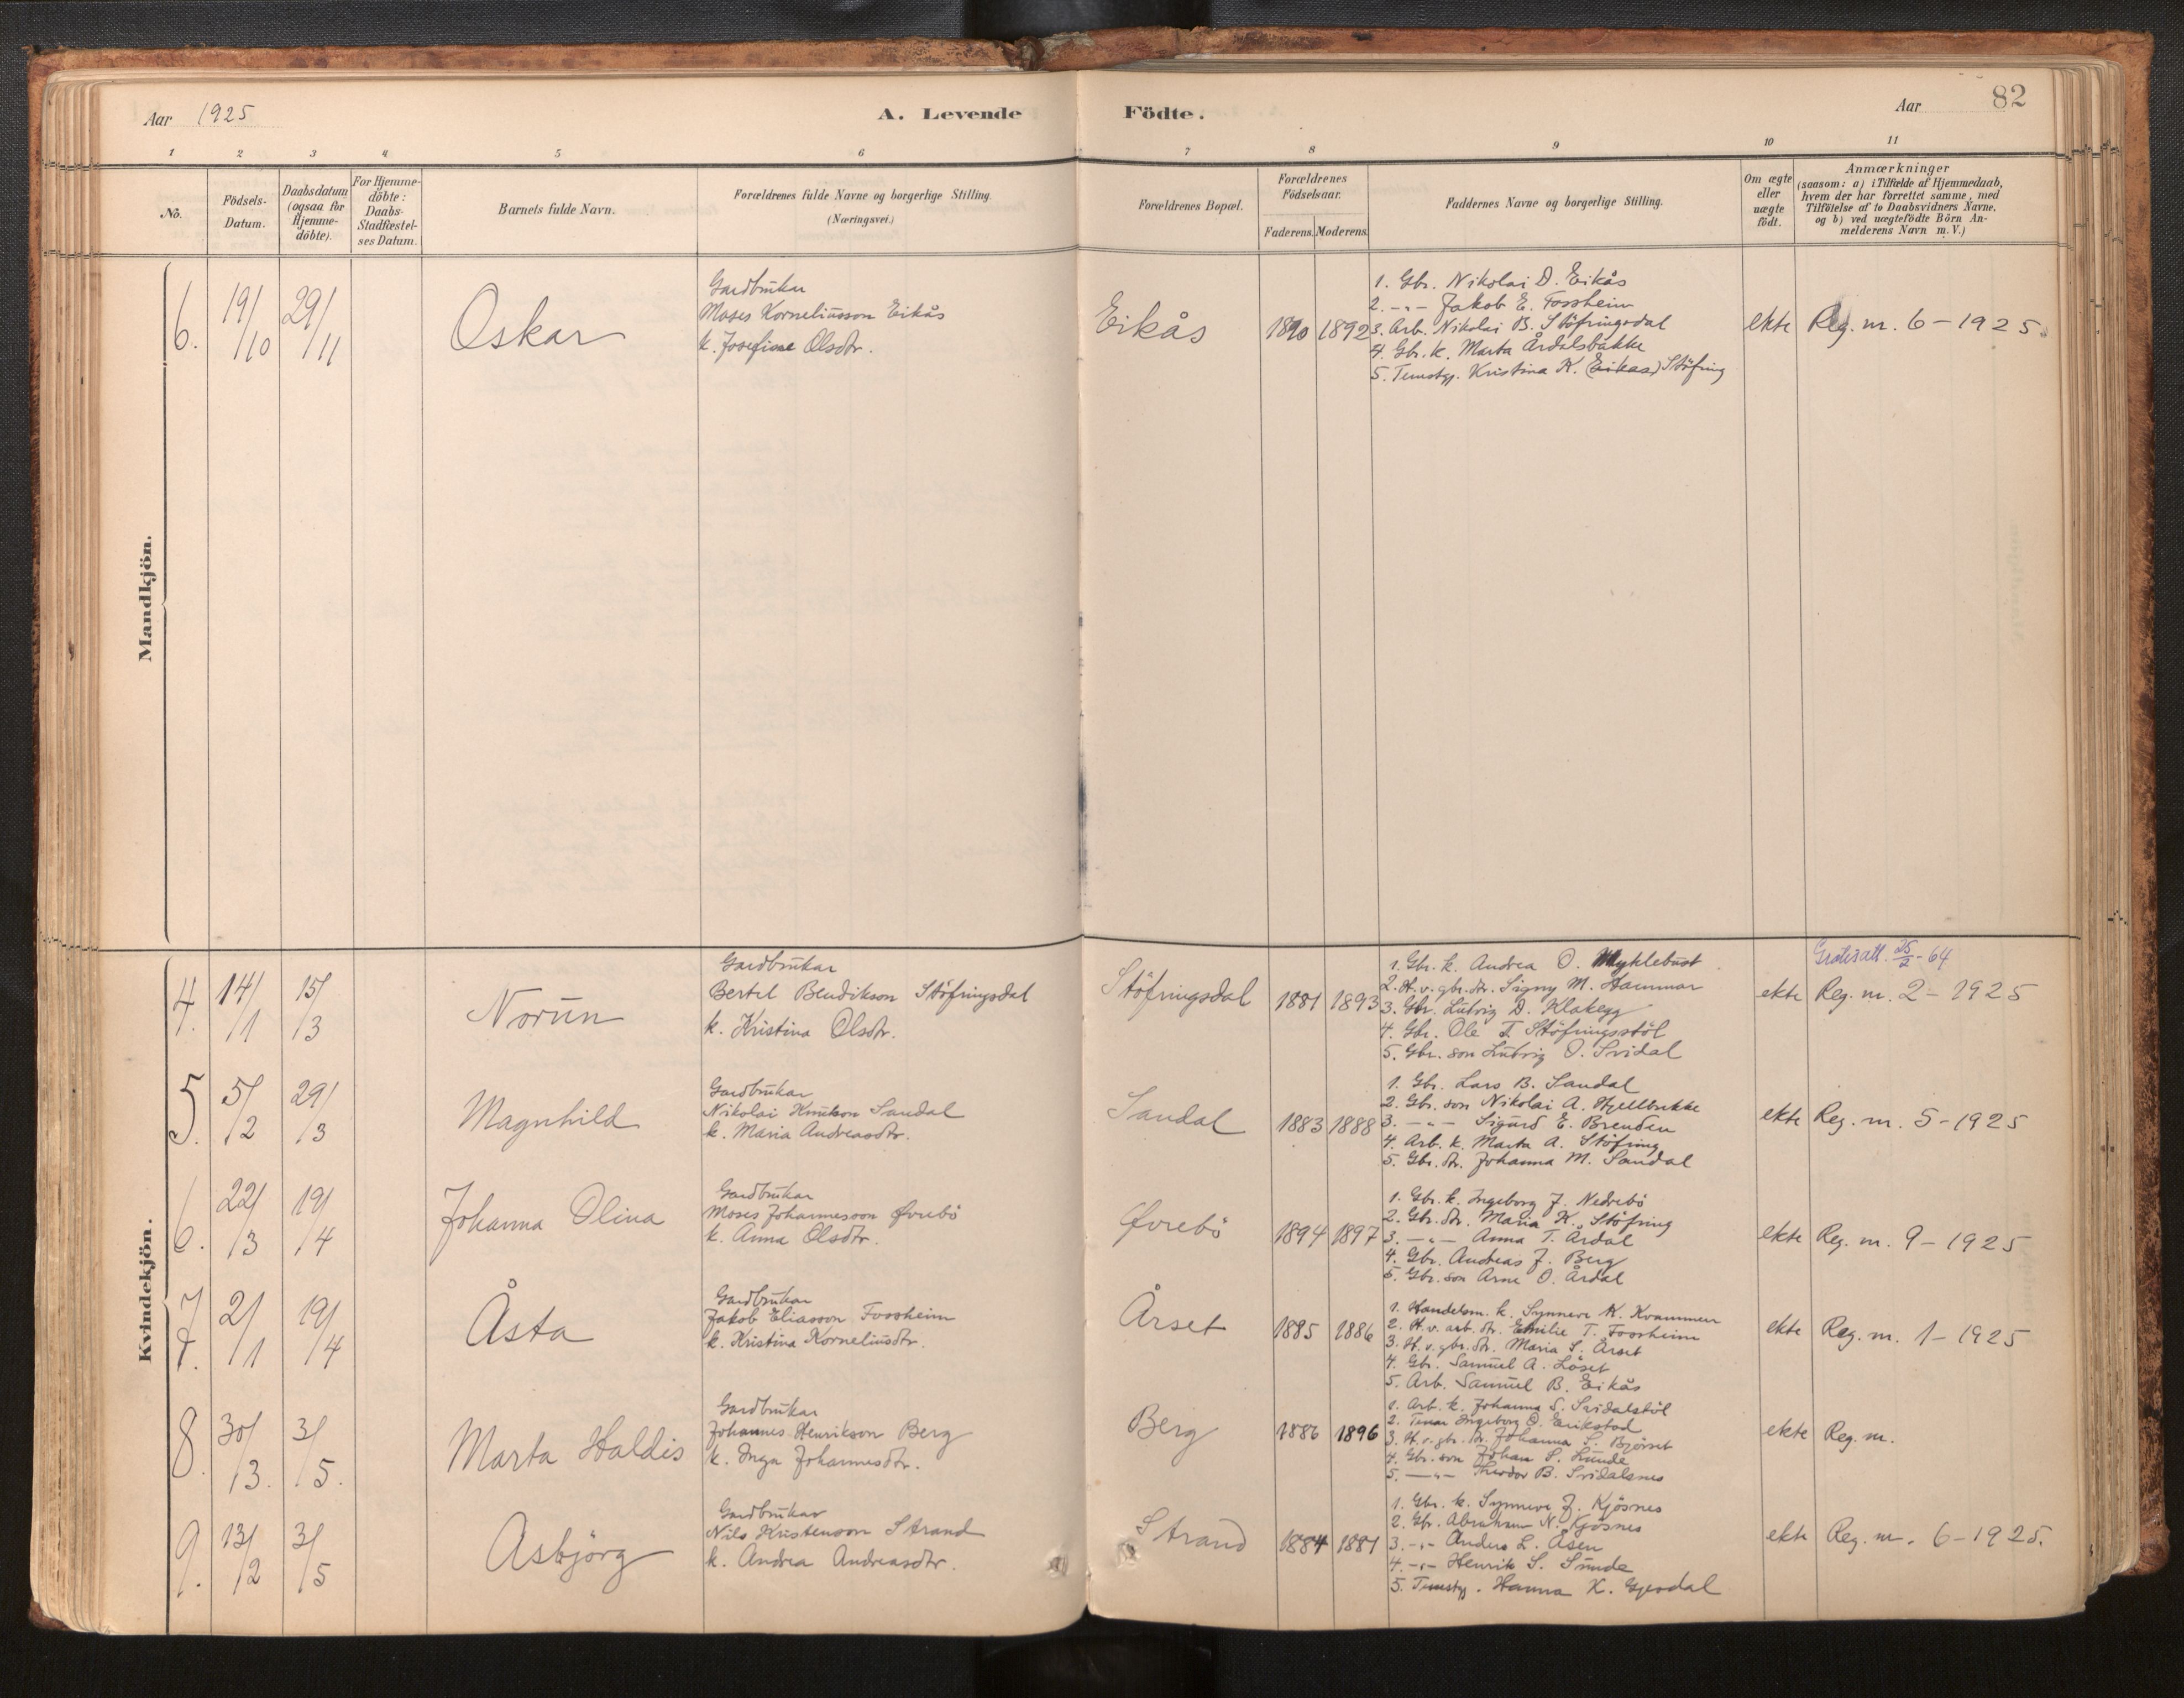 Aar 1925
A. Levende Födte.
Aar 82
1 2 3 4 5 6 7 8 9 10 11
No.
Födsels-
Datum.
Daabsdatum
(ogsaa for
Hjemme-
döbte).
For Hjemme-
döbte:
Daabs-
Stadfæstel-
ses Datum.
Barnets fulde Navn.
Forældrenes fulde Navne og borgerlige Stilling.
(Næringsvei.)
Forældrenes Bopæl.
Forældrenes
Födselsaar.
Faderens. Moderens.
Faddernes Navne og borgerlige Stilling.
Om ægte
eller
uægte
födt.
Anmærkninger
(saasom: a) i Tilfælde af Hjemmedaab,
hvem der har forrettet samme, med
Tilföielse af to Daabsvidners Navne,
og b) ved uægtefödte Börn An-
melderens Navn m. V.)
Mandkjön.
6. 19/10 29/11
Oskar
Gardbrukar
Moses Korneliusson Eikås
k. Josefine Olsdtr.
Eikås
1890 1892
1. Gbr. Nikolai D. Eikås
2. -"- Jakob E. Fossheim
3. Arb. Nikolai B. Stöfringsdal
4. Gbr. k. Marta Årdalsbakke
5. Tenstgj. Kristina K. (Eikas) Stöfring
ekte
Reg. m. 6 - 1925.
Kvindekjön.
4. 14/1 15/3
Norun
Gardbrukar
Bertel Bendikson Stöfringsdal
k. Kristina Olsdtr.
Stöfringsdal
1881 1893
1. Gbr. k. Andrea O. Myklebust
2. H.v. gbr. dtr. Signy M. Hammar
3. Gbr. Ludvig D. Klakegg
4. Gbr. Ole T. Stöfringsstöl
5. Gbr. son Ludvig O. Svidal
ekte
25/2 - 64
Reg. m. 2 - 1925
5. 5/2 29/3
Magnhild
Gardbrukar
Nikolai Knutson Sandal
k. Maria Andreasdtr.
Sandal
1883 1888
1. Gbr. Lars B. Sandal
2. Gbr. son Nikolai A. Hjellbrekke
3. -"- Sigurd E. Brenden
4. Arb. k. Marta A. Stöfring
5. Gbr. dtr. Johanna M. Sandal
ekte
Reg. m. 5 - 1925
6. 22/3 19/4
Johanna Olina
Gardbrukar
Moses Johannesson Øvrebö
k. Anna Olsdtr.
Øvrebö
1894 1897
1. Gbr. k. Ingeborg J. Nedrebö
2. Gbr. dtr. Maria K. Stöfring
3. -"- Anna T. Årdal
4. Gbr. Andreas J. Berg
5. Gbr. son Arne O. Årdal
ekte
Reg. m. 9 - 1925
7. 2/1 19/4
Åsta
Gardbrukar
Jakob Eliasson Fossheim
k. Kristina Korneliusdtr.
Årset
1885 1886
1. Handelsm. k. Synneve K. Kvammen
2. H.v. arb. dtr. Emilie T. Fossheim
3. H.v. gbr. dtr. Maria S. Årset
4. Gbr. Samuel A. Löset
5. Arb. Samuel B. Eikås
ekte
Reg. m. 1 - 1925
8. 30/3. 3/5.
Marta Haldis
Gardbrukar
Johannes Henrikson Berg
k. Inga Johannesdtr.
Berg
1886 1896
1. Arb. k. Johanna S. Svidalstöl
2. Tenar Ingeborg O. Erikstad
3. H.v. gbr. dtr. Johanna S. Bjørset
4. Gbr. son Johan S. Sunde
5. -"- Theodor B. Svidalsnes
ekte
Reg. m.
9. 13/2 3/5
Asbjörg
Gardbrukar
Nils Kristensson Strand
k. Andrea Andreasdtr.
Strand
1884 1881
1. Gbr. k. Synneve J. Kjösnes
2. Gbr. Abraham N. Kjösnes
3. -"- Anders L. Åsen
4. -"- Henrik S. Sunde
5. Tenstgj. Hanna K. Gjesdal
ekte
Reg. m. 6 - 1925.